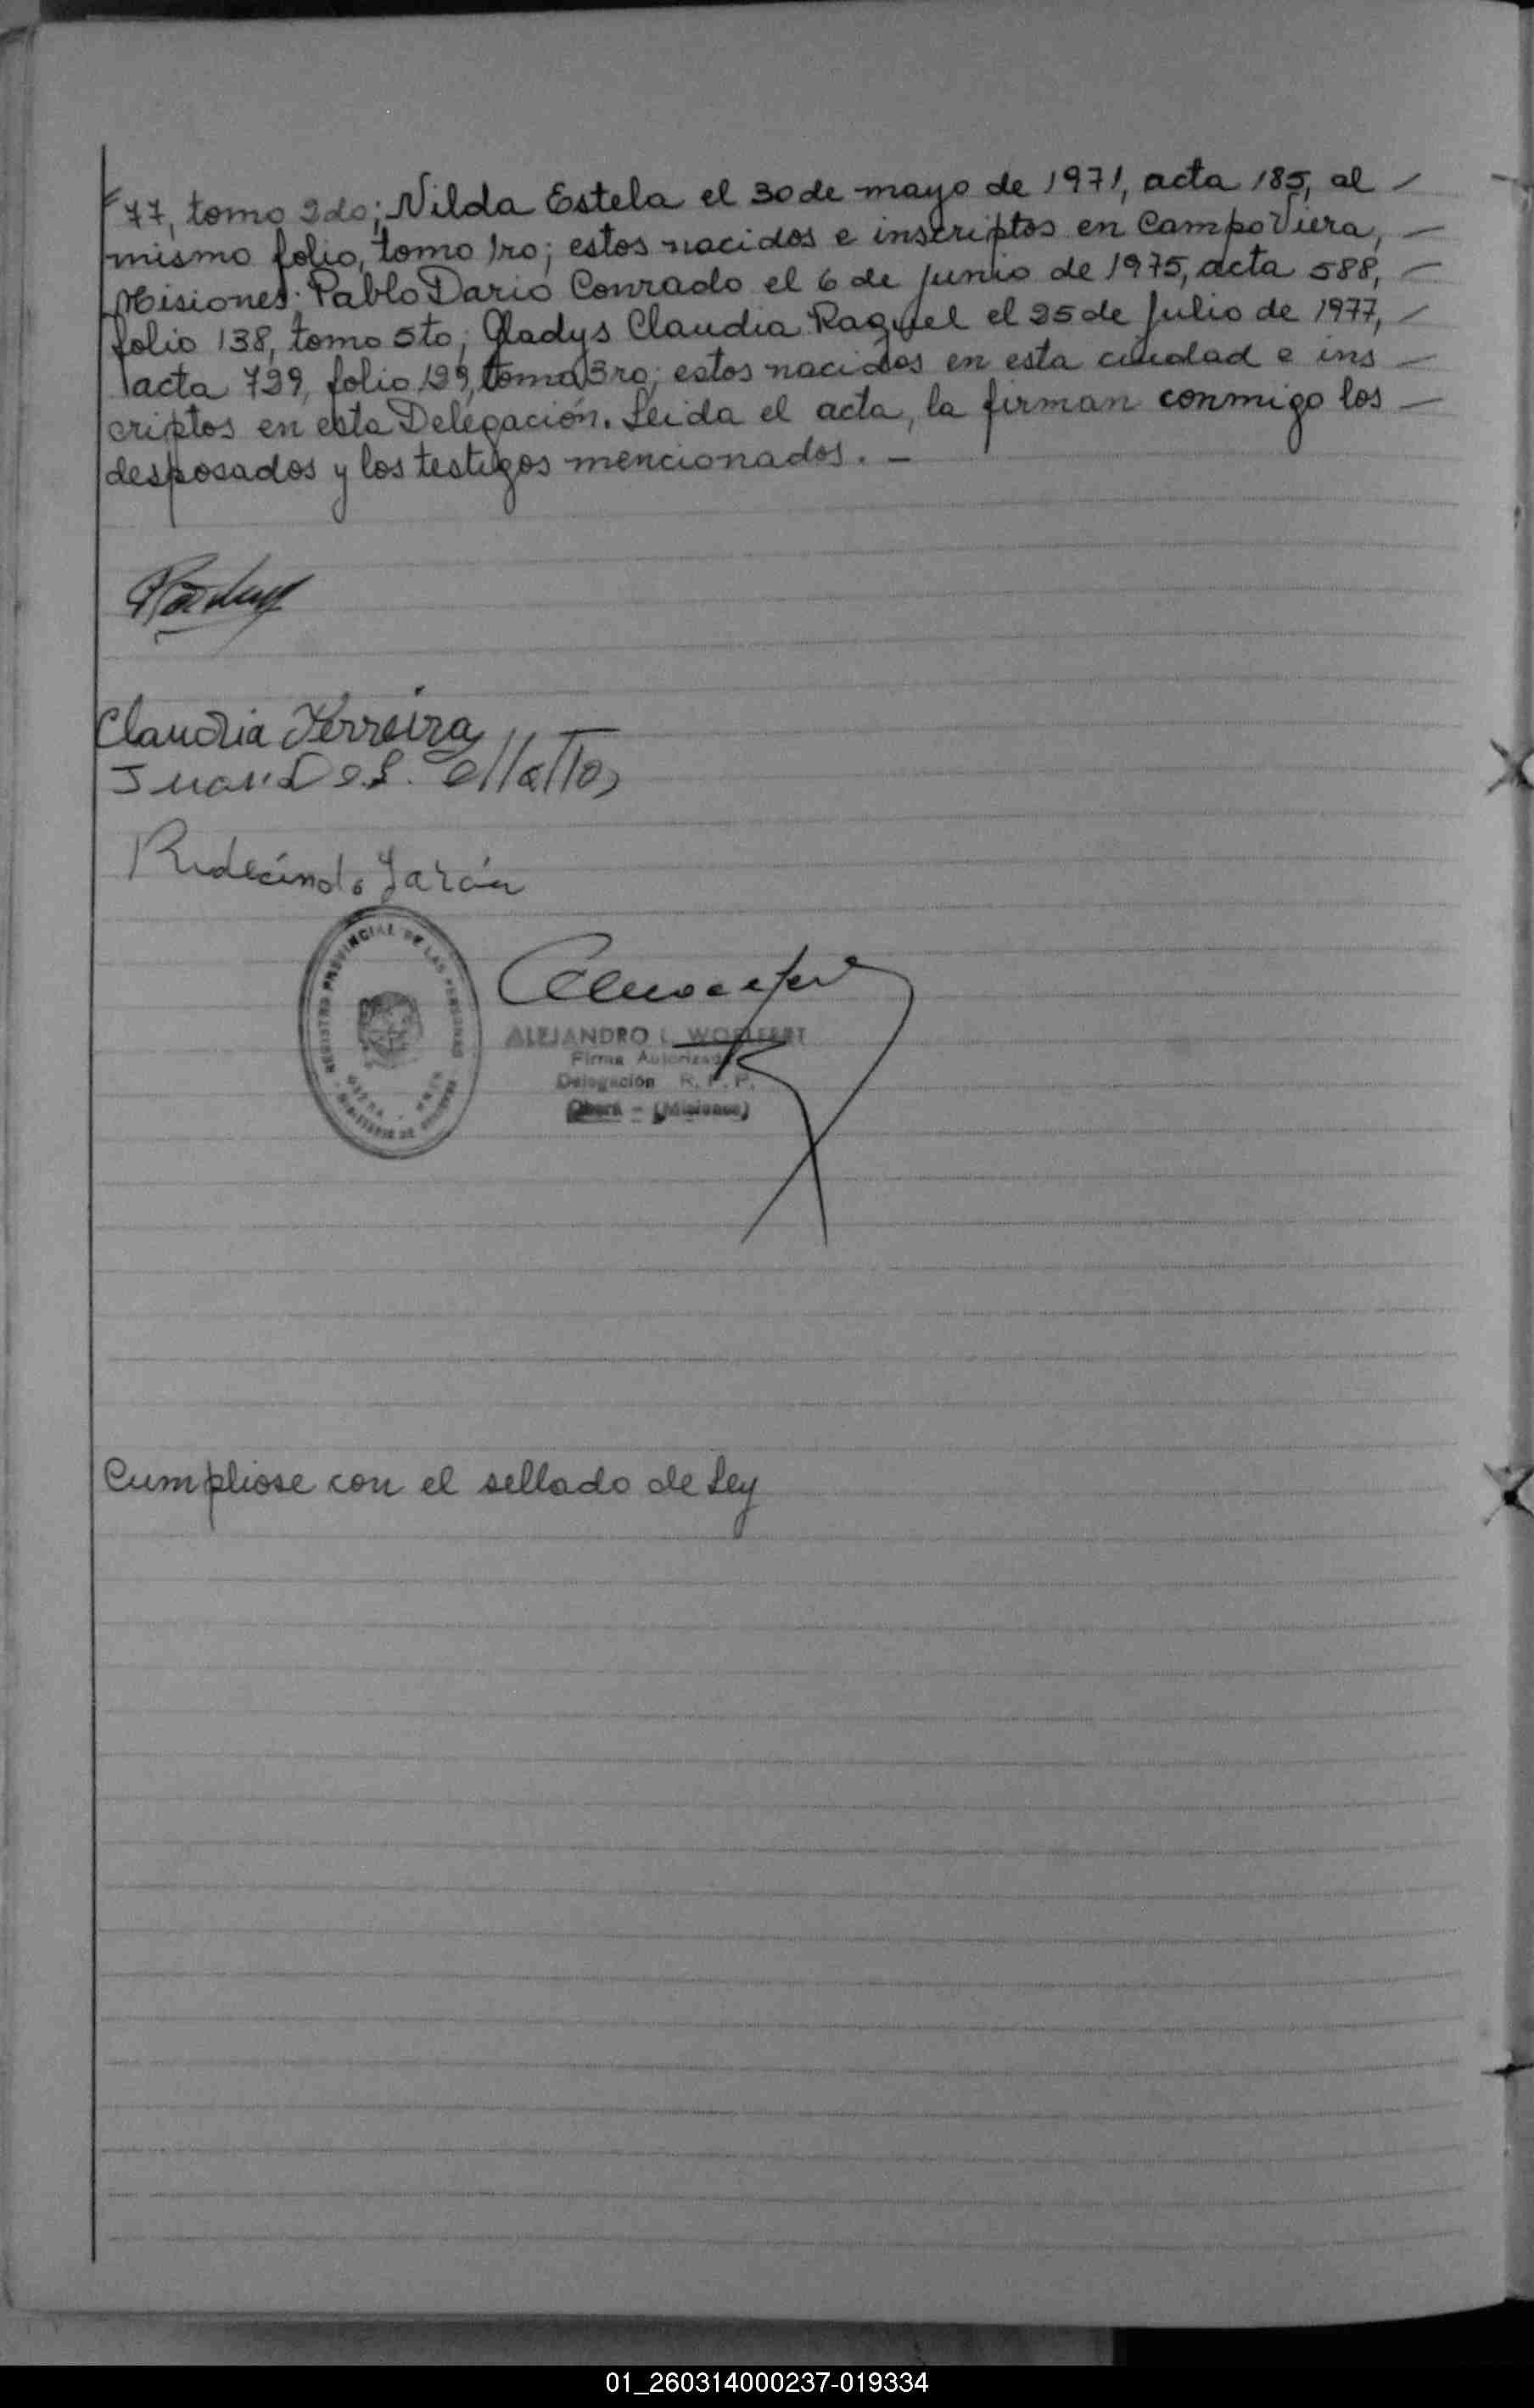 77, tomo 2do; Nilda Estela el 30 de mayo de 1971, acta 185, al
mismo folio, tomo 1ro; estos nacidos e inscriptos en Campo Viera,
Misiones; Pablo Dario Conrado el 6 de junio de 1975, acta 588,
folio 138, tomo 5to; Gladys Claudia Raquel el 25 de julio de 1977,
acta 729, folio 129, tomo 3ro; estos nacidos en esta ciudad e ins
criptos en esta Delegación. Leida el acta, la firman conmigo los
desposados y los testigos mencionados. -
Claudia Ferreira
Juan De L. Mattos
Rudecindo
REGISTRO PROVINCIAL DE LAS PERSONAS
ALEJANDRO L. WOELFERT
Firma Autorizada
Delegación R. P. P.
Oberá - (Misiones)
Cumpliose con el sellado de Ley
01_260314000237-019334